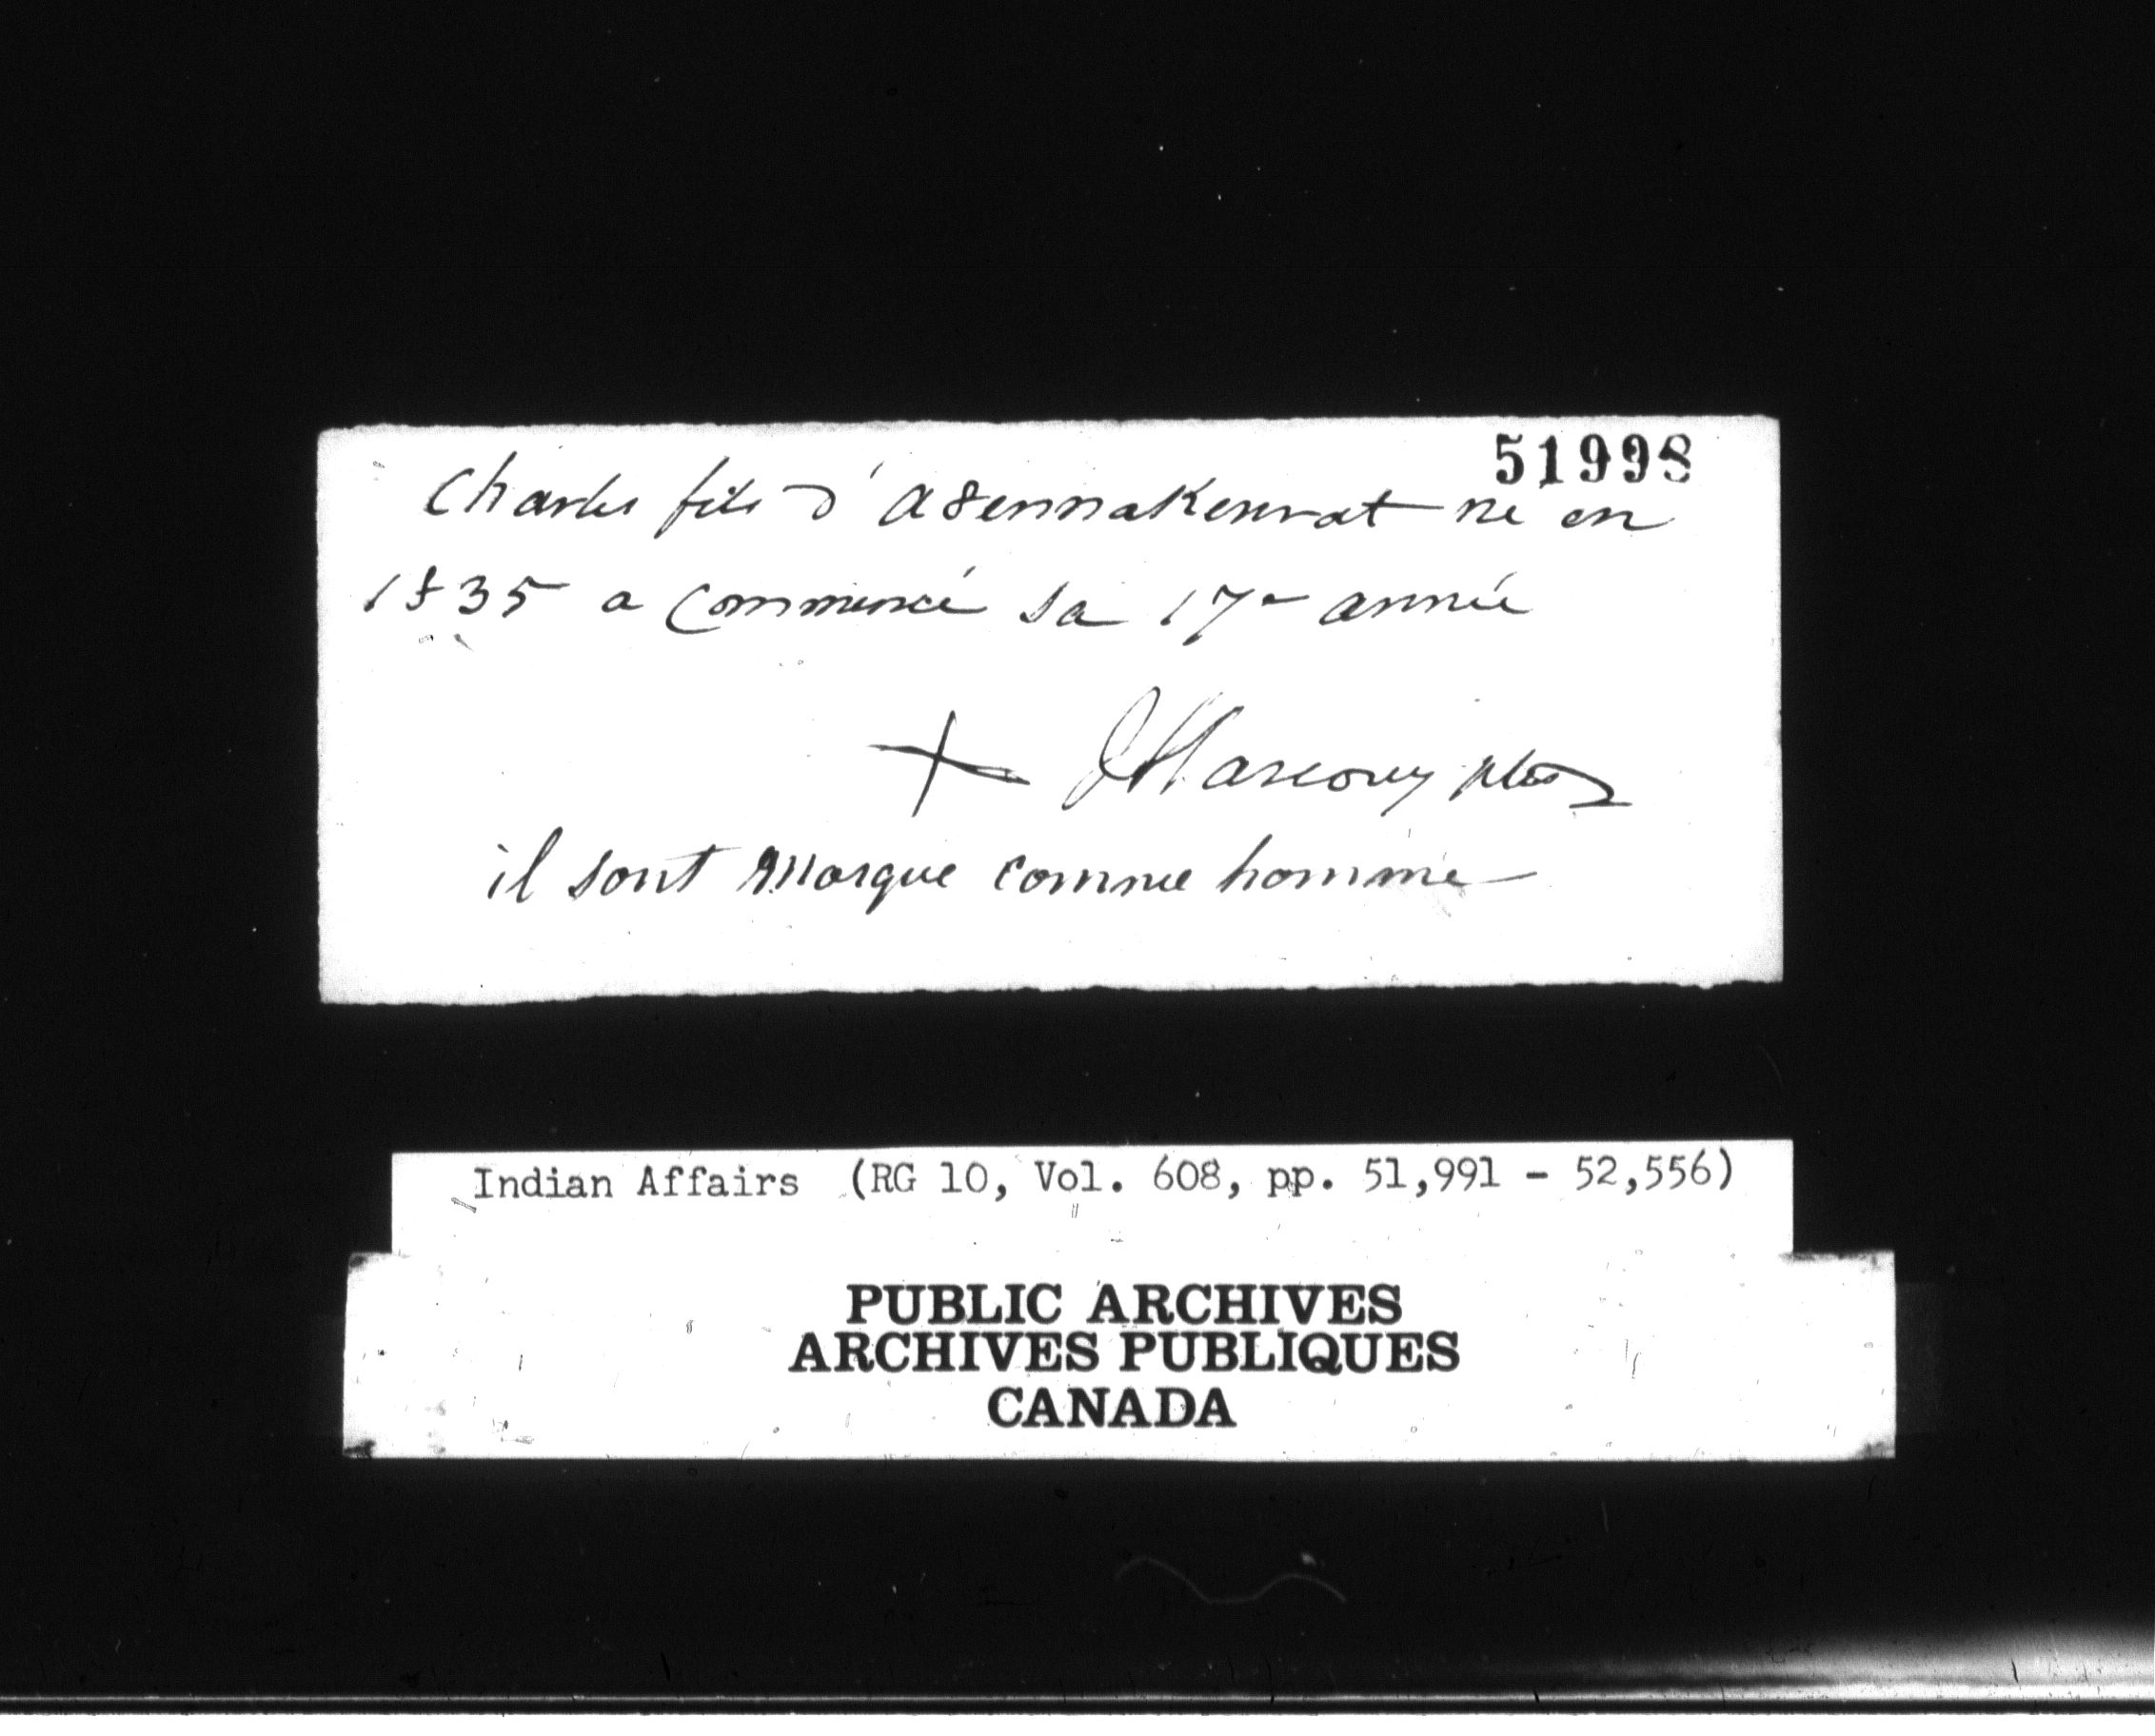 51998
Charles fils d' a8ennakenrat né en
1835 a Commencé sa 17e année
+ J Marcoux ptre
il sont Marque comme homme
Indian Affairs (RG 10, Vol. 608, pp. 51,991 - 52,556)
PUBLIC ARCHIVES
ARCHIVES PUBLIQUES
CANADA